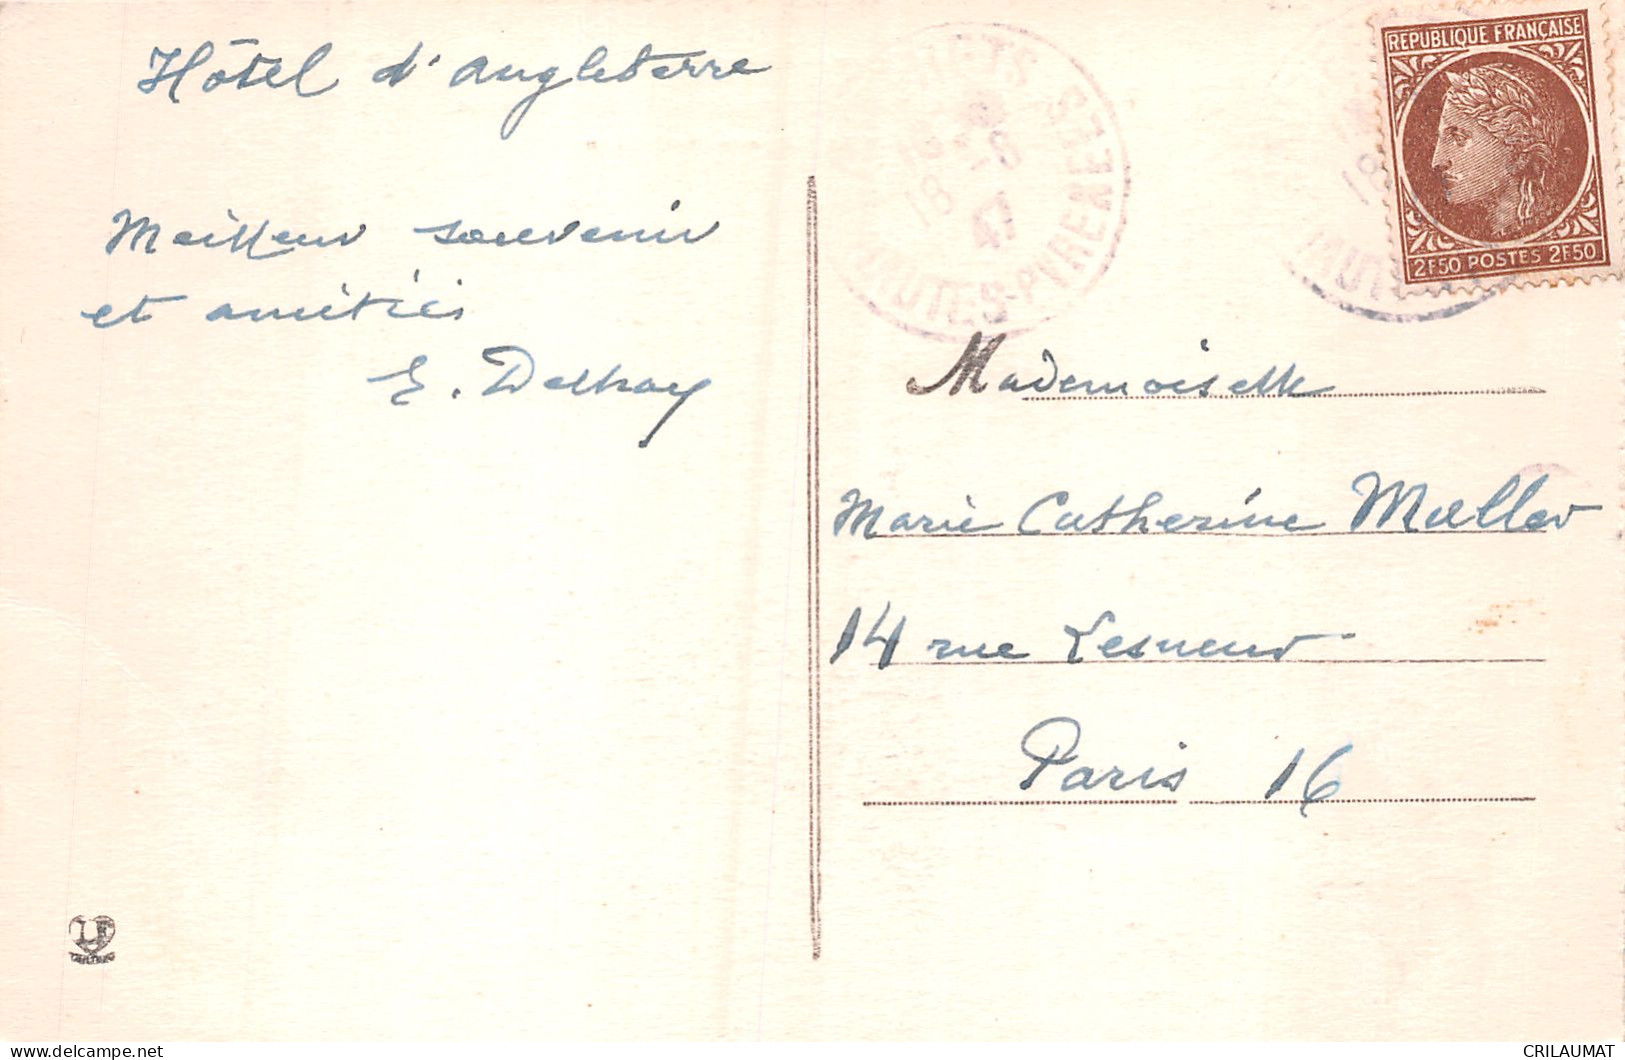 Hôtel d'Angleterre
Meilleur souvenir
et amitiés
E. Delhay
HAUTES-PYRENEES
18
47
REPUBLIQUE FRANÇAISE
2F50 POSTES 2F50
Mademoiselle
Marie Catherine Muller
14 rue Lesueur
Paris 16
CRILAUMAT